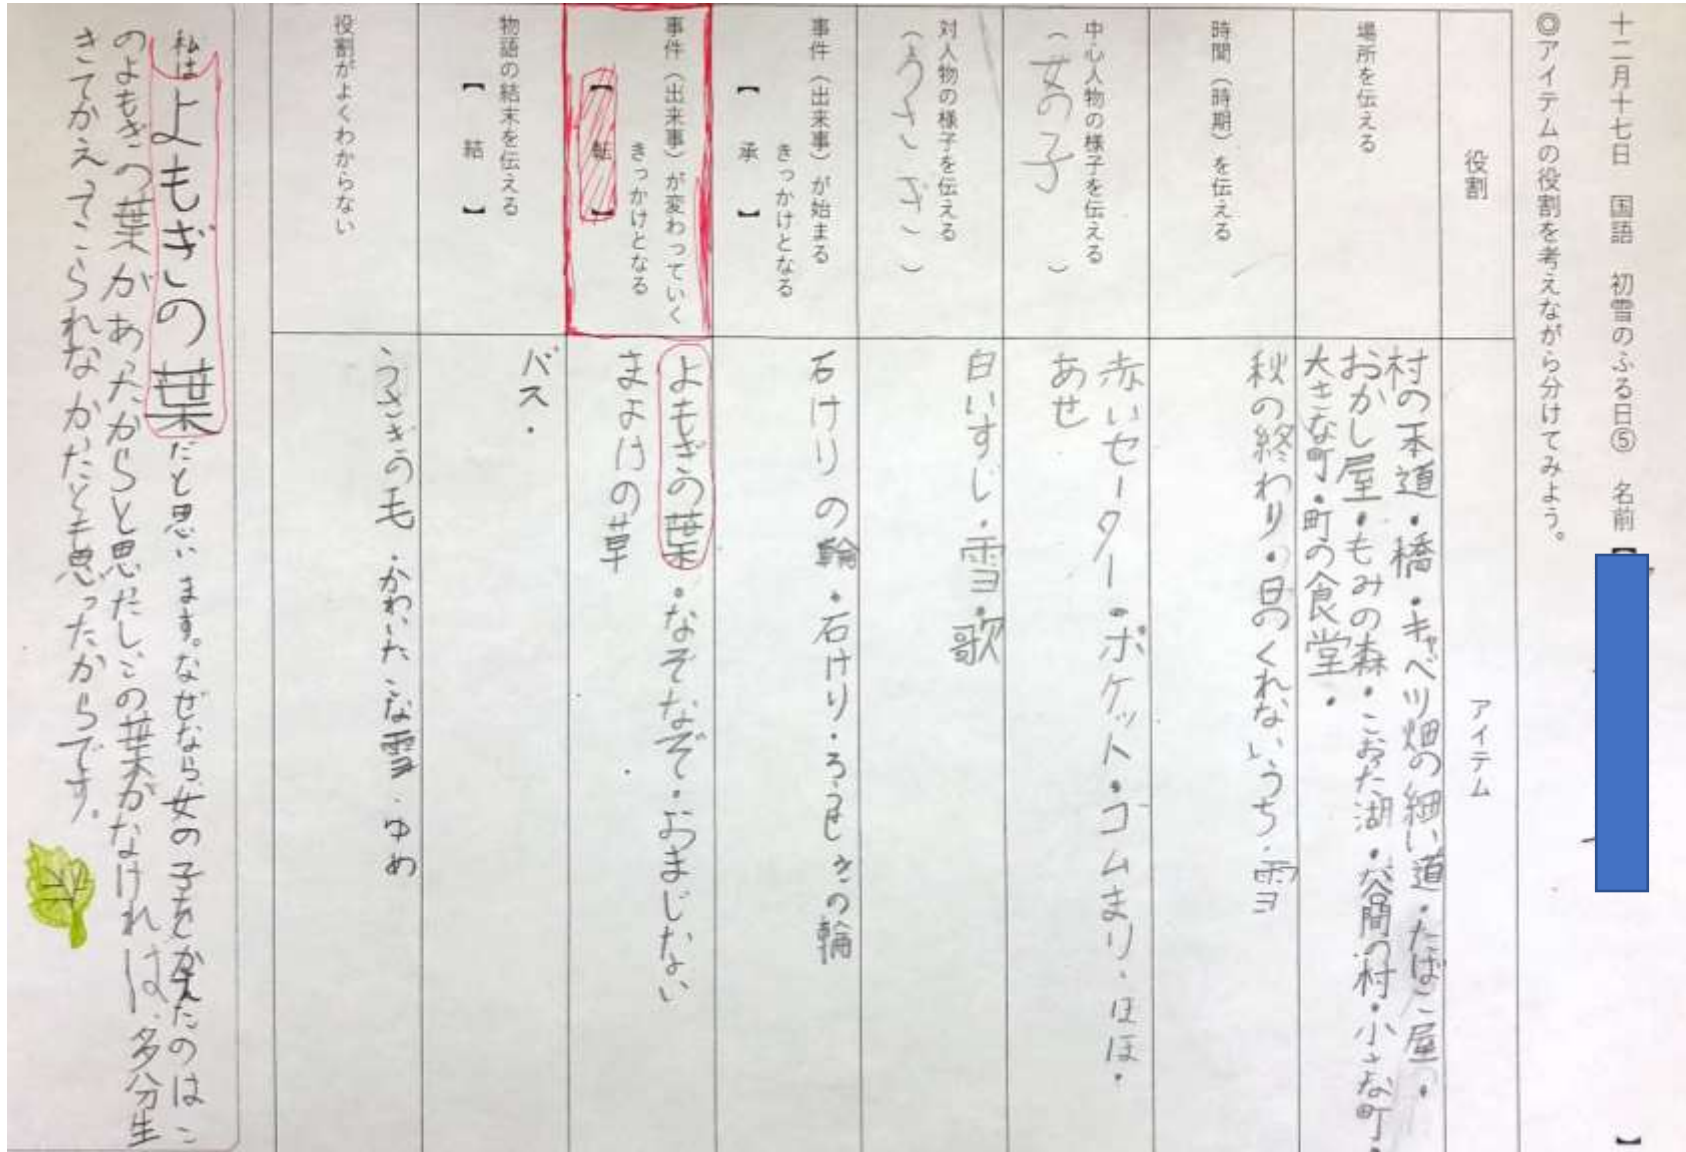 十二月十七日　国語　初雪のふる日⑤　名前【　】
◎アイテムの役割を考えながら分けてみよう。
役割
アイテム
場所を伝える
村の一本道・橋・キャベツ畑の細い道・たばこ屋・
おかし屋・もみの森・こおった湖・谷間の村・小さな町・
大きな町・町の食堂・
時間（時期）を伝える
秋の終わり・日のくれないうち・雪
中心人物の様子を伝える
（女の子）
赤いセーター・ポケット・ゴムまり・ほほ・
あせ
対人物の様子を伝える
（うさぎ）
白いすじ・雪・歌
事件（出来事）が始まる
きっかけとなる
【　承　】
石けりの輪・石けり・ろう石・その輪
事件（出来事）が変わっていく
きっかけとなる
【　転　】
よもぎの葉・なぞなぞ・おまじない
まよけの草
物語の結末を伝える
【　結　】
バス・
役割がよくわからない
うさぎの毛・かわいたこな雪・ゆめ
私はよもぎの葉だと思います。なぜなら、女の子をかえたのはこ
のよもぎの葉があったからと思だし、この葉がなければ、多分生
きてかえってこられなかったと思ったからです。